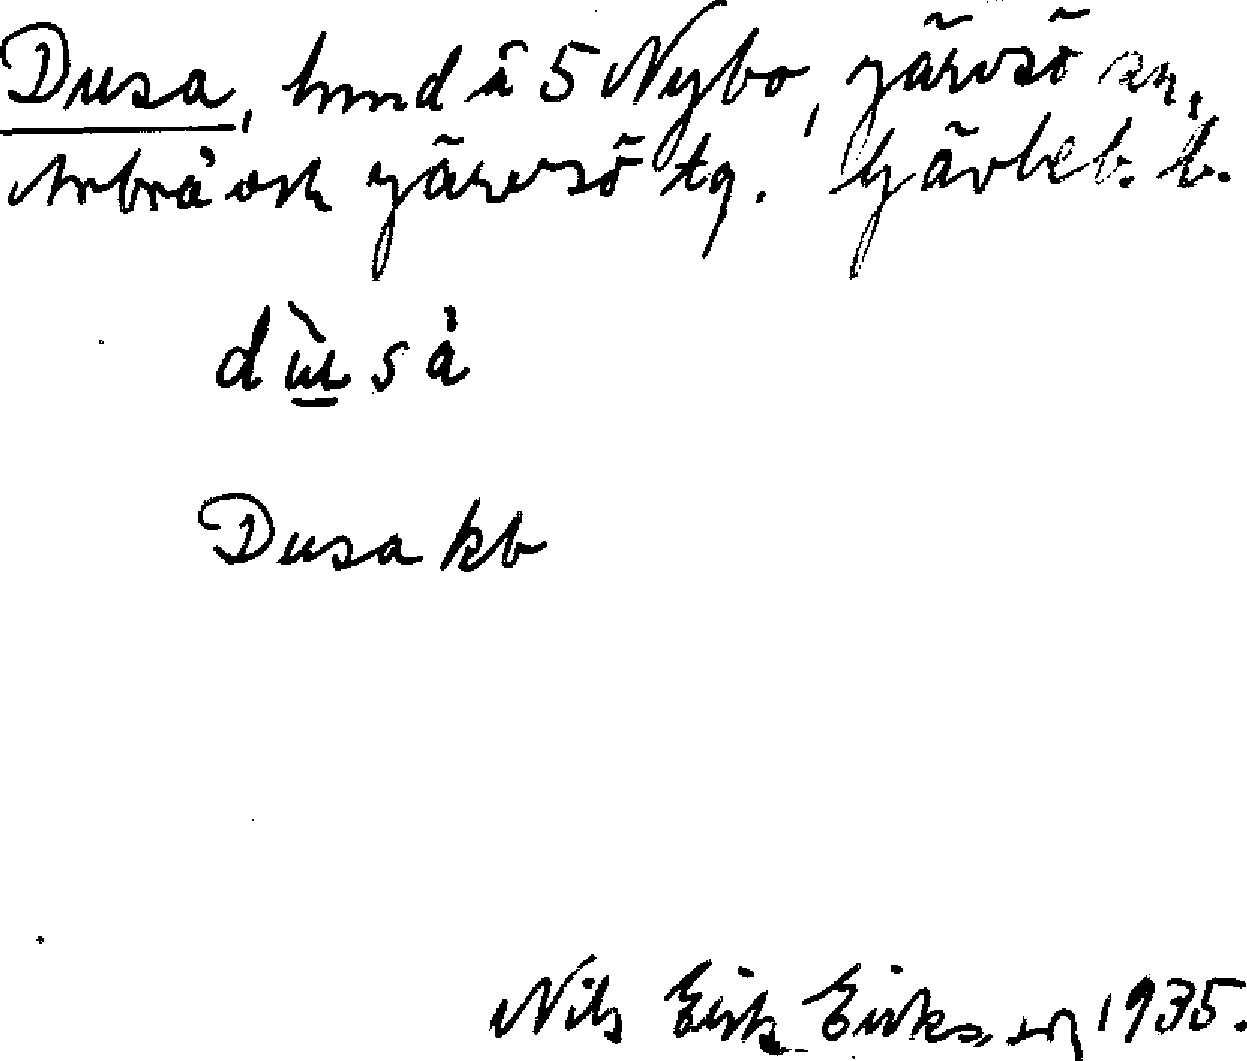 Dusa, hmd å 5 Nybo, Järvsö sn,
Arbrå och Järvsö tg. Gävleb. l.
dùsà
Dusa kb
Nils Erik Eriksson 1935.